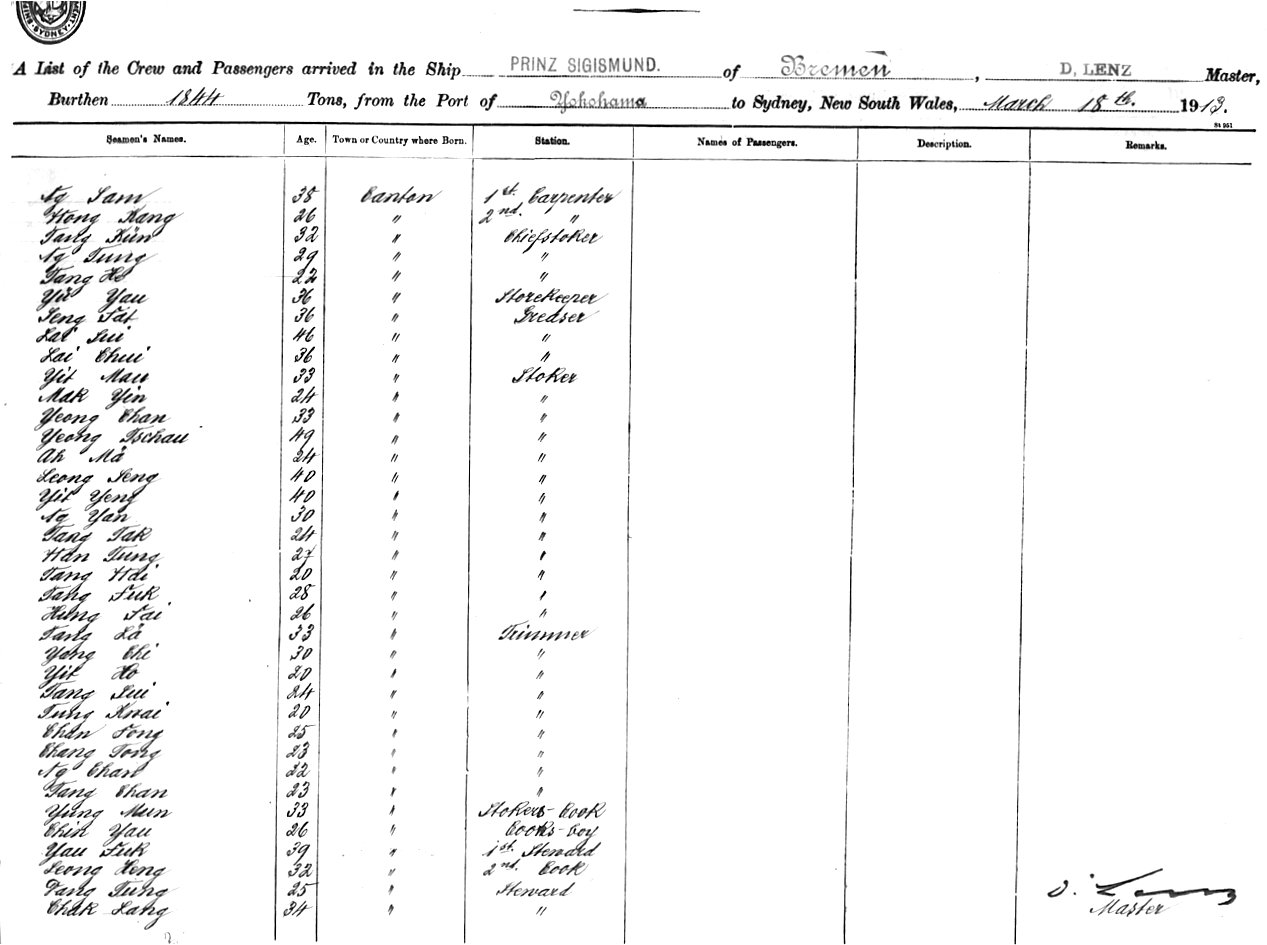 SYDNEY
A List of the Crew and Passengers arrived in the Ship PRINZ SIGISMUND. of Bremen, D. LENZ Master,
Burthen 1844 Tons, from the Port of Yokohama to Sydney, New South Wales, March 18th. 1913.
St 951
Seamen's Names. Age. Town or Country where Born. Station. Names of Passengers. Description. Remarks.
Ng Sam 38 Canton 1st. Carpenter
Hong Kang 26 " 2nd. "
Tang Kün 32 " Chiefstoker
Ng Tung 29 " "
Tang Ho 22 " "
Yü Yau 36 " Storekeeper
Seng Fat 36 " Greaser
Lai Sui 46 " "
Lai Chui 36 " "
Yit Mau 33 " Stoker
Mak Yin 24 " "
Yeong Chan 33 " "
Yeong Tschau 49 " "
Ah Mà 24 " "
Leong Seng 40 " "
Yit Yeng 40 " "
Ng Yan 30 " "
Tang Tak 24 " "
Han Tung 27 " "
Tang Hai 20 " "
Tang Fuk 28 " "
Hung Fai 26 " "
Tang Là 33 " Trimmer
Yong Chi 30 " "
Yit Ho 20 " "
Tang Sui 24 " "
Tung Kwai 20 " "
Chan Fong 25 " "
Chang Tong 23 " "
Ng Chan 22 " "
Tang Chan 23 " "
Yung Mun 33 " Stokers-Cook
Chin Yau 26 " Cooks-boy
Yau Fuk 39 " 1st. Steward
Leong Heng 32 " 2nd. Cook
Tang Tung 25 " Steward
Chak Lang 34 " "
D. Lenz
Master